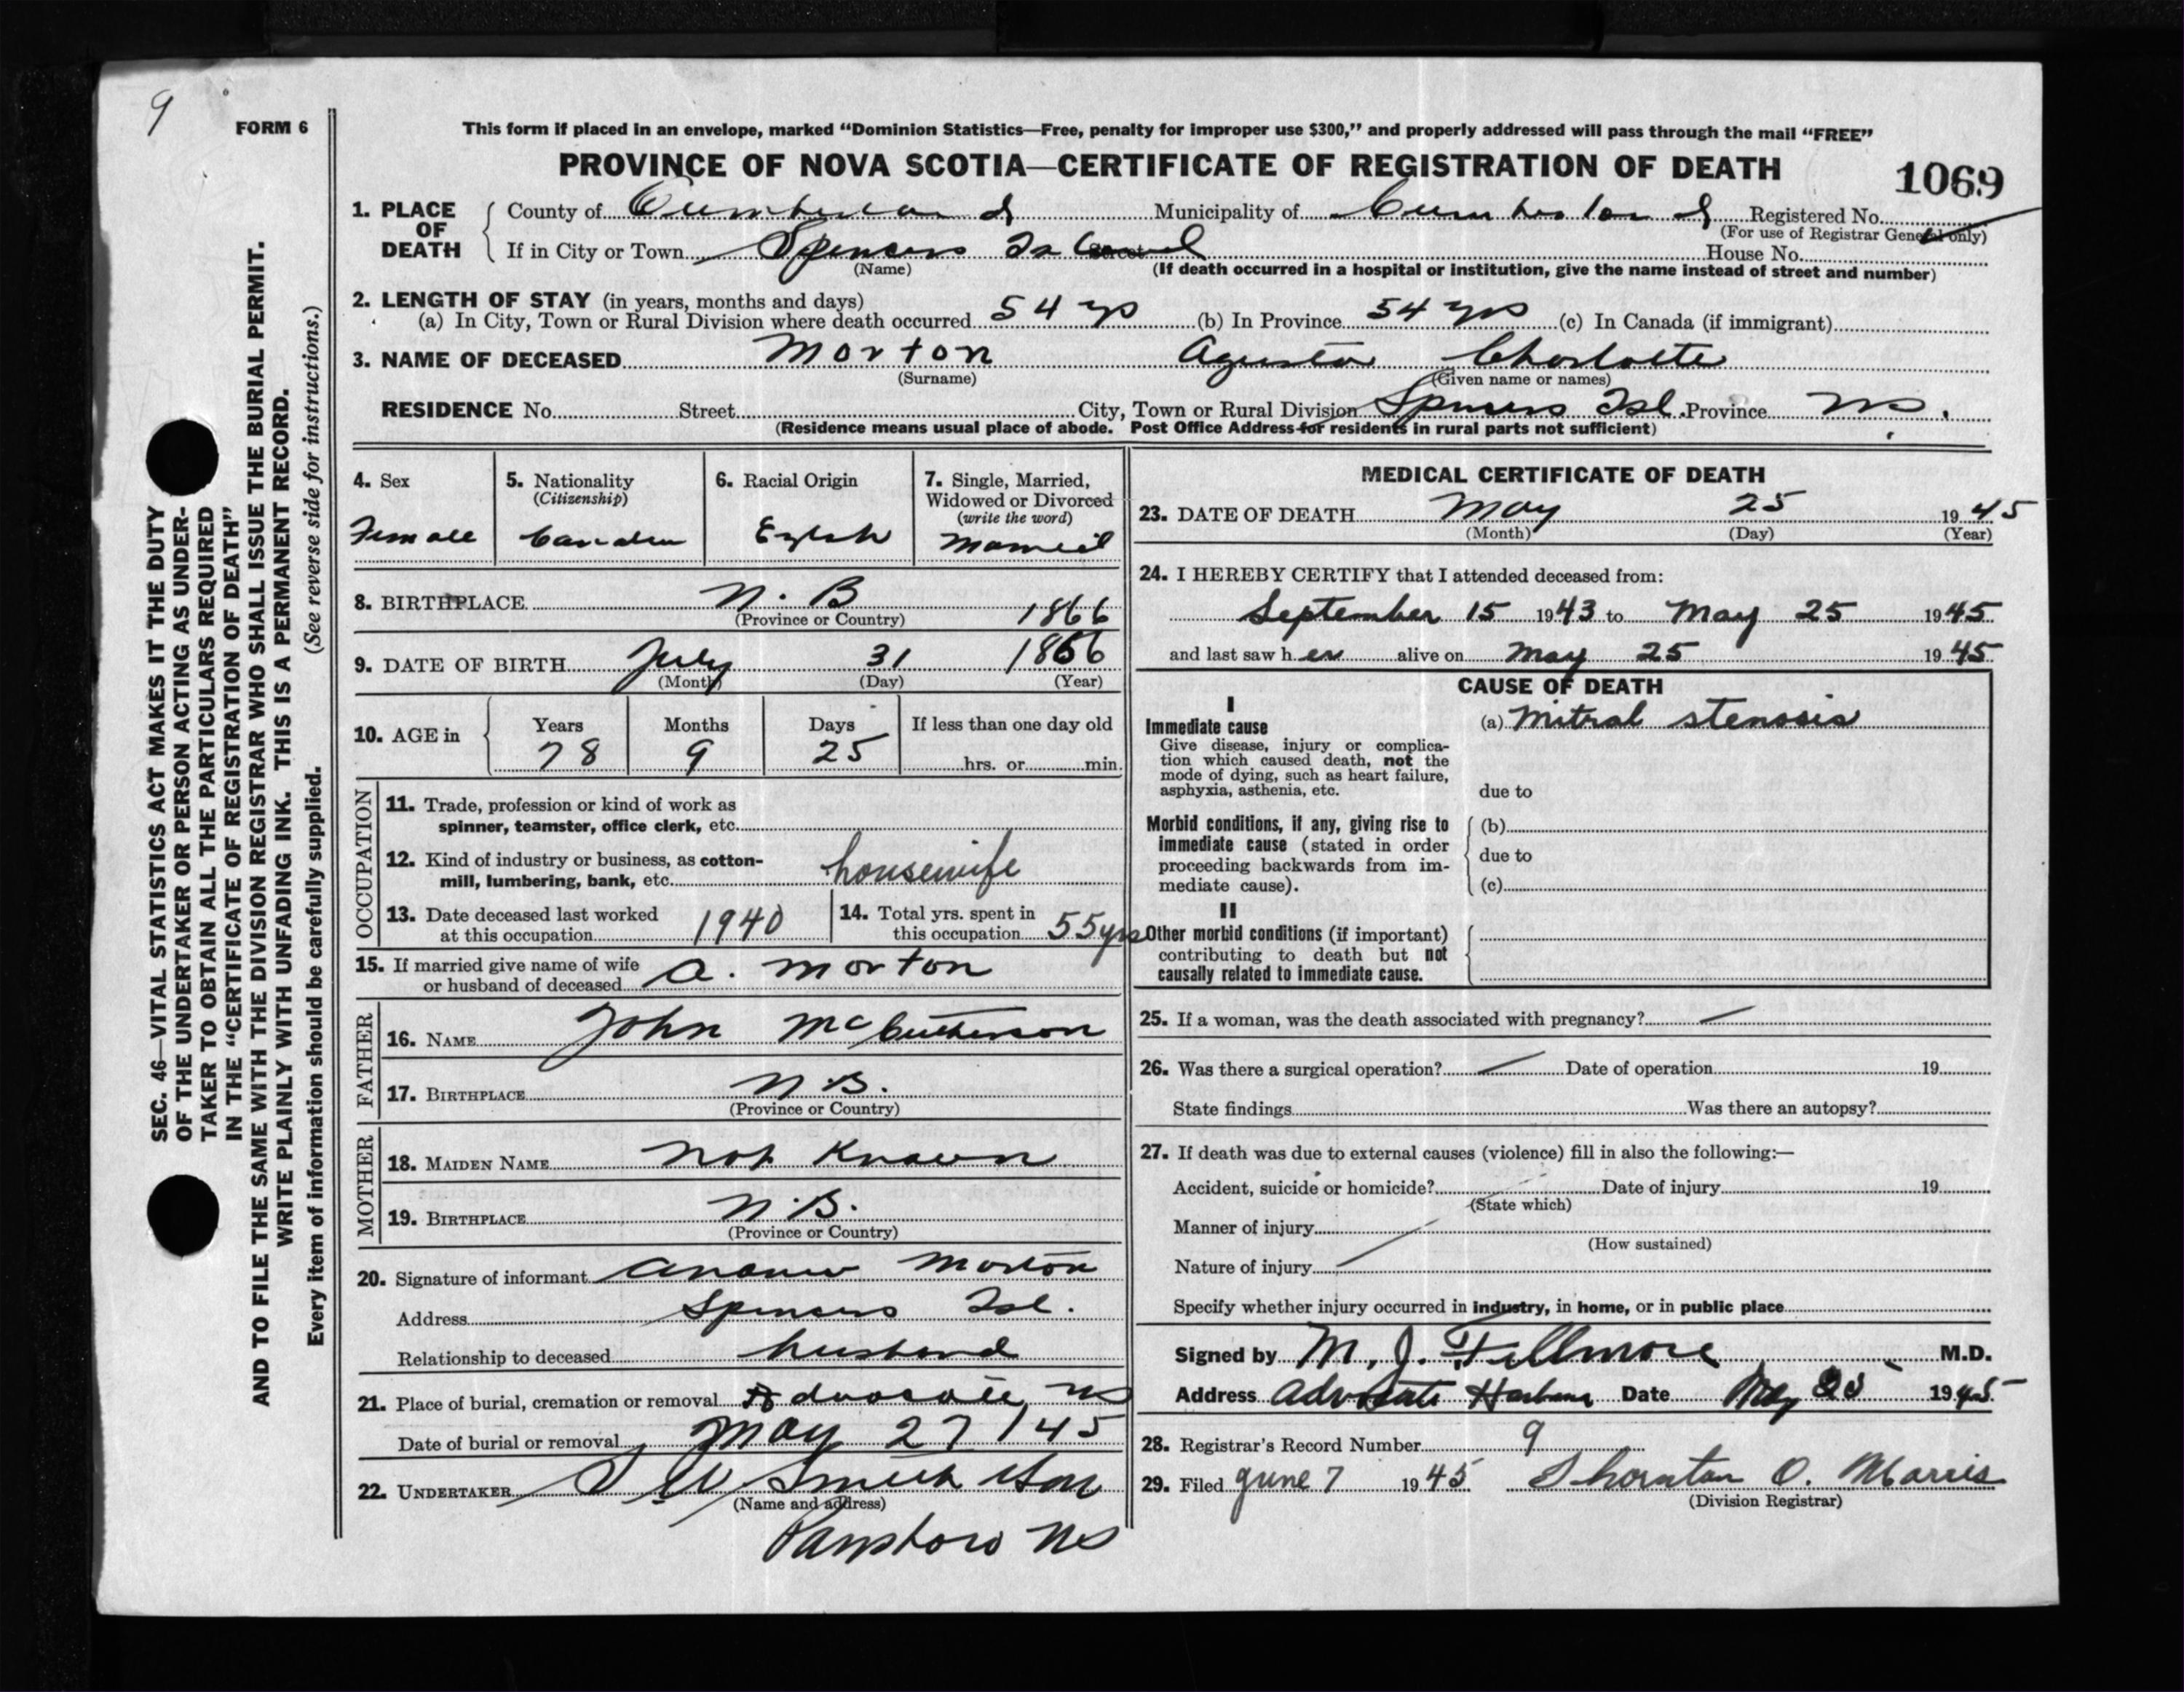 9
FORM 6
This form if placed in an envelope, marked “Dominion Statistics—Free, penalty for improper use $300,” and properly addressed will pass through the mail “FREE”
PROVINCE OF NOVA SCOTIA—CERTIFICATE OF REGISTRATION OF DEATH
1069
1. PLACE OF DEATH
County of Cumberland Municipality of Cumberland Registered No.
(For use of Registrar General only)
If in City or Town Spencers Island Street House No.
(Name) (If death occurred in a hospital or institution, give the name instead of street and number)
2. LENGTH OF STAY (in years, months and days)
(a) In City, Town or Rural Division where death occurred 54 yrs (b) In Province 54 yrs (c) In Canada (if immigrant)
3. NAME OF DECEASED Morton Agusta Charlotte
(Surname) (Given name or names)
RESIDENCE No. Street City, Town or Rural Division Spencers Isl. Province NS.
(Residence means usual place of abode. Post Office Address for residents in rural parts not sufficient)
4. Sex
Female
5. Nationality
(Citizenship)
Canadian
6. Racial Origin
English
7. Single, Married,
Widowed or Divorced
(write the word)
Married
8. BIRTHPLACE N. B
(Province or Country)
1866
9. DATE OF BIRTH July 31 1866
(Month) (Day) (Year)
10. AGE in
Years Months Days If less than one day old
78 9 25 hrs. or min.
OCCUPATION
11. Trade, profession or kind of work as
spinner, teamster, office clerk, etc.
12. Kind of industry or business, as cotton-
mill, lumbering, bank, etc. housewife
13. Date deceased last worked
at this occupation 1940
14. Total yrs. spent in
this occupation 55yrs
15. If married give name of wife
or husband of deceased A. Morton
FATHER
16. NAME John McCutherson
17. BIRTHPLACE N.B.
(Province or Country)
MOTHER
18. MAIDEN NAME Not Known
19. BIRTHPLACE N.B.
(Province or Country)
20. Signature of informant Andrew Morton
Address Spencers Isl.
Relationship to deceased husband
21. Place of burial, cremation or removal Advocate, NS
Date of burial or removal May 27/45
22. UNDERTAKER S W Smith & Son
(Name and address)
Parrsboro NS
MEDICAL CERTIFICATE OF DEATH
23. DATE OF DEATH May 25 1945
(Month) (Day) (Year)
24. I HEREBY CERTIFY that I attended deceased from:
September 15 1943 to May 25 1945
and last saw her alive on May 25 1945
CAUSE OF DEATH
I
Immediate cause
Give disease, injury or complica-
tion which caused death, not the
mode of dying, such as heart failure,
asphyxia, asthenia, etc.
(a) Mitral stenosis
due to
Morbid conditions, if any, giving rise to
immediate cause (stated in order
proceeding backwards from im-
mediate cause).
(b)
due to
(c)
II
Other morbid conditions (if important)
contributing to death but not
causally related to immediate cause.
25. If a woman, was the death associated with pregnancy? —
26. Was there a surgical operation? — Date of operation 19
State findings Was there an autopsy?
27. If death was due to external causes (violence) fill in also the following:—
Accident, suicide or homicide? Date of injury 19
(State which)
Manner of injury
(How sustained)
Nature of injury
Specify whether injury occurred in industry, in home, or in public place
Signed by M. J. Fillmore M.D.
Address Advocate Harbour Date May 25 1945
28. Registrar's Record Number 9
29. Filed June 7 1945 Thornton O. Morris
(Division Registrar)
SEC. 46—VITAL STATISTICS ACT MAKES IT THE DUTY
OF THE UNDERTAKER OR PERSON ACTING AS UNDER-
TAKER TO OBTAIN ALL THE PARTICULARS REQUIRED
IN THE “CERTIFICATE OF REGISTRATION OF DEATH”
AND TO FILE THE SAME WITH THE DIVISION REGISTRAR WHO SHALL ISSUE THE BURIAL PERMIT.
WRITE PLAINLY WITH UNFADING INK. THIS IS A PERMANENT RECORD.
Every item of information should be carefully supplied. (See reverse side for instructions.)